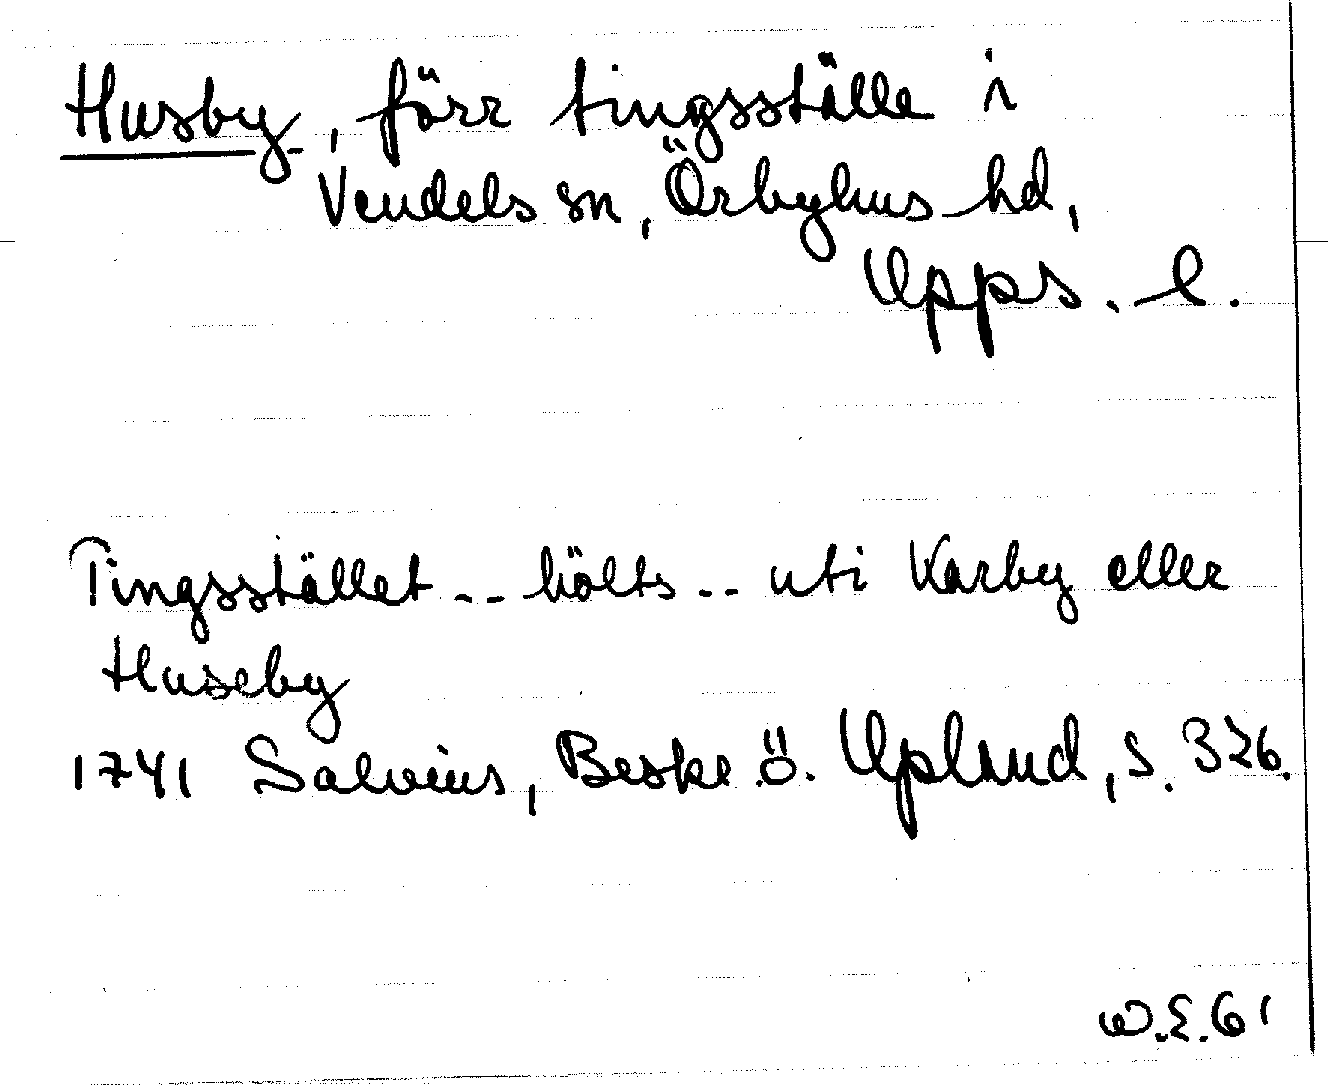 Husby, förr tingsställe i
Vendels sn, Örbyhus hd,
Upps. l.
Tingsstället -- hölts -- uti Karby eller
Huseby
1741 Salvius, Beskr. ö. Upland, s. 326.
W.E. 61